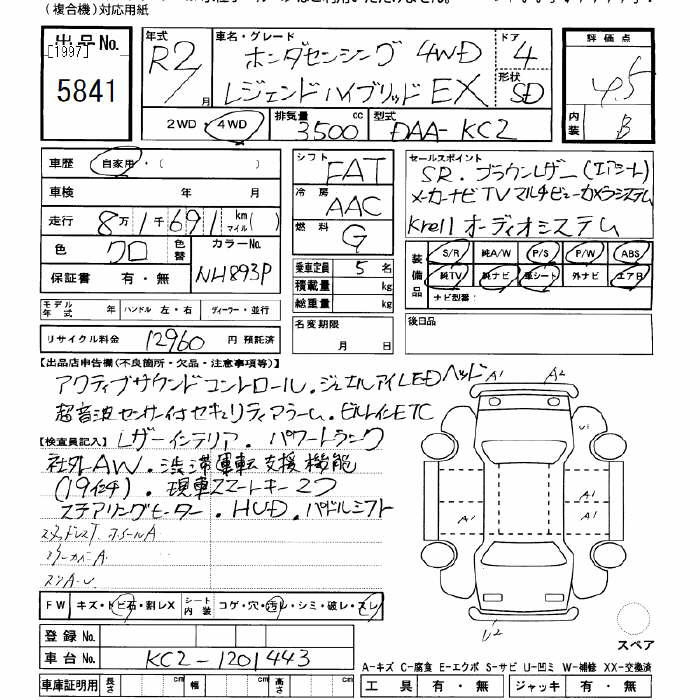 (複合機)対応用紙
出品No.
[1997]
5841
年式
R2/
月
車名・グレード
ホンダセンシング 4WD
レジェンドハイブリッド EX
ドア
4
形状
SD
評価点
4.5
内装
B
2WD・4WD
排気量
3500
cc
型式
DAA-KC2
車歴
自家用・( )
車検
年 月
走行
8万1千691
km
マイル( )
色
クロ
色替
カラーNo.
NH893P
保証書
有・無
シフト
FAT
冷房
AAC
燃料
G
乗車定員
5名
積載量
kg
総重量
kg
セールスポイント
SR.ブラウンレザー(エアシート)
メーカーナビTVマルチビューカメラシステム
Krell オーディオシステム
装備品
S/R 純A/W P/S P/W ABS
純TV 純ナビ 革シート 外ナビ エアB
ナビ型番:
モデル年式
年
ハンドル 左・右
ディーラー・並行
名変期限
月 日
後日品
リサイクル料金
12960
円 預託済
【出品店申告欄(不良箇所・欠品・注意事項等)】
アクティブサウンドコントロール.ジュエルアイLEDヘッド
超音波センサー付セキュリティアラーム.ビルトインETC
【検査員記入】
レザーインテリア.パワートランク
社外AW.渋滞運転支援機能
(19インチ).現車スマートキー2つ
ステアリングヒーター.HUD.パドルシフト
A1 A2
U1
A1 A1
A1
U2
スペア
FW
キズ・トビ石・割レX
シート内装
コゲ・穴・汚レ・シミ・破レ・スレ
登録No.
車台No.
KC2-1201443
A-キズ C-腐食 E-エクボ S-サビ U-凹ミ W-補修 XX-交換済
車庫証明用
長さ
cm
幅
cm
高さ
cm
工具
有・無
ジャッキ
有・無